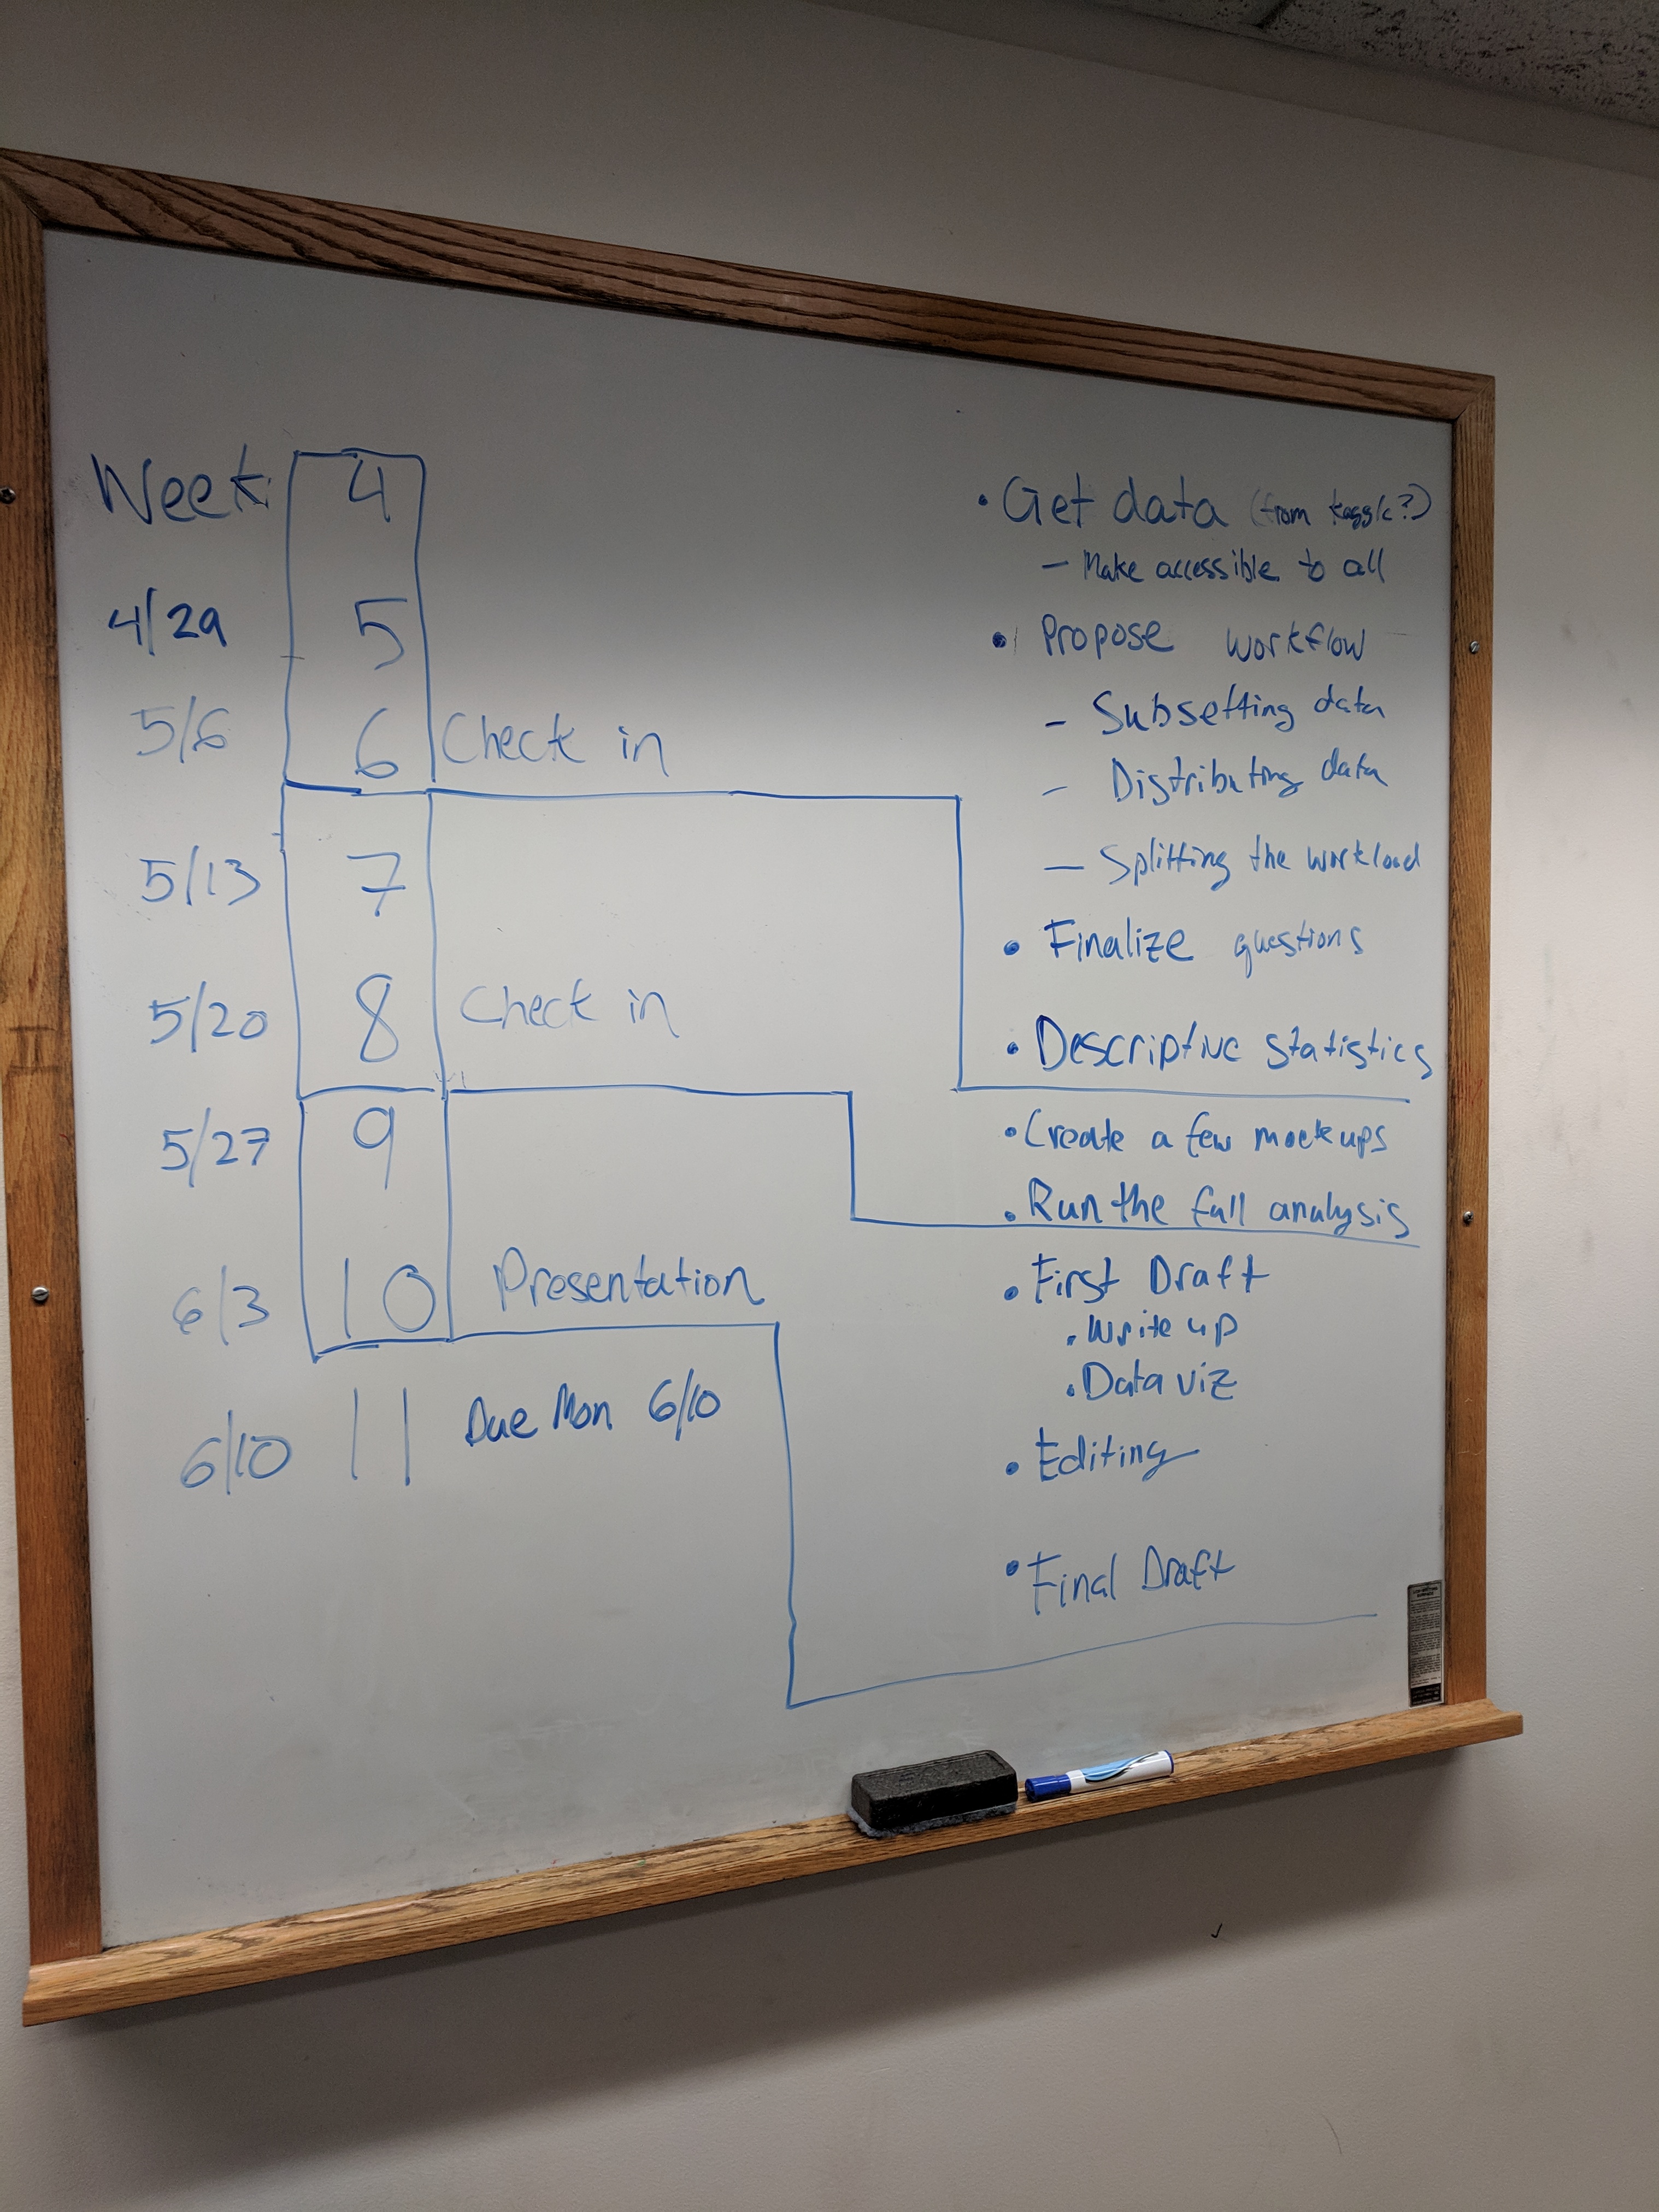 Week: 4
4/29 5
5/6 6 Check in
5/13 7
5/20 8 Check in
5/27 9
6/3 10 Presentation
6/10 11 Due Mon 6/10
• Get data (from kaggle?)
– Make accessible to all
• Propose workflow
– Subsetting data
– Distributing data
– Splitting the workload
• Finalize questions
• Descriptive statistics
• Create a few mockups
• Run the full analysis
• First Draft
• Write up
• Data viz
• Editing
• Final Draft